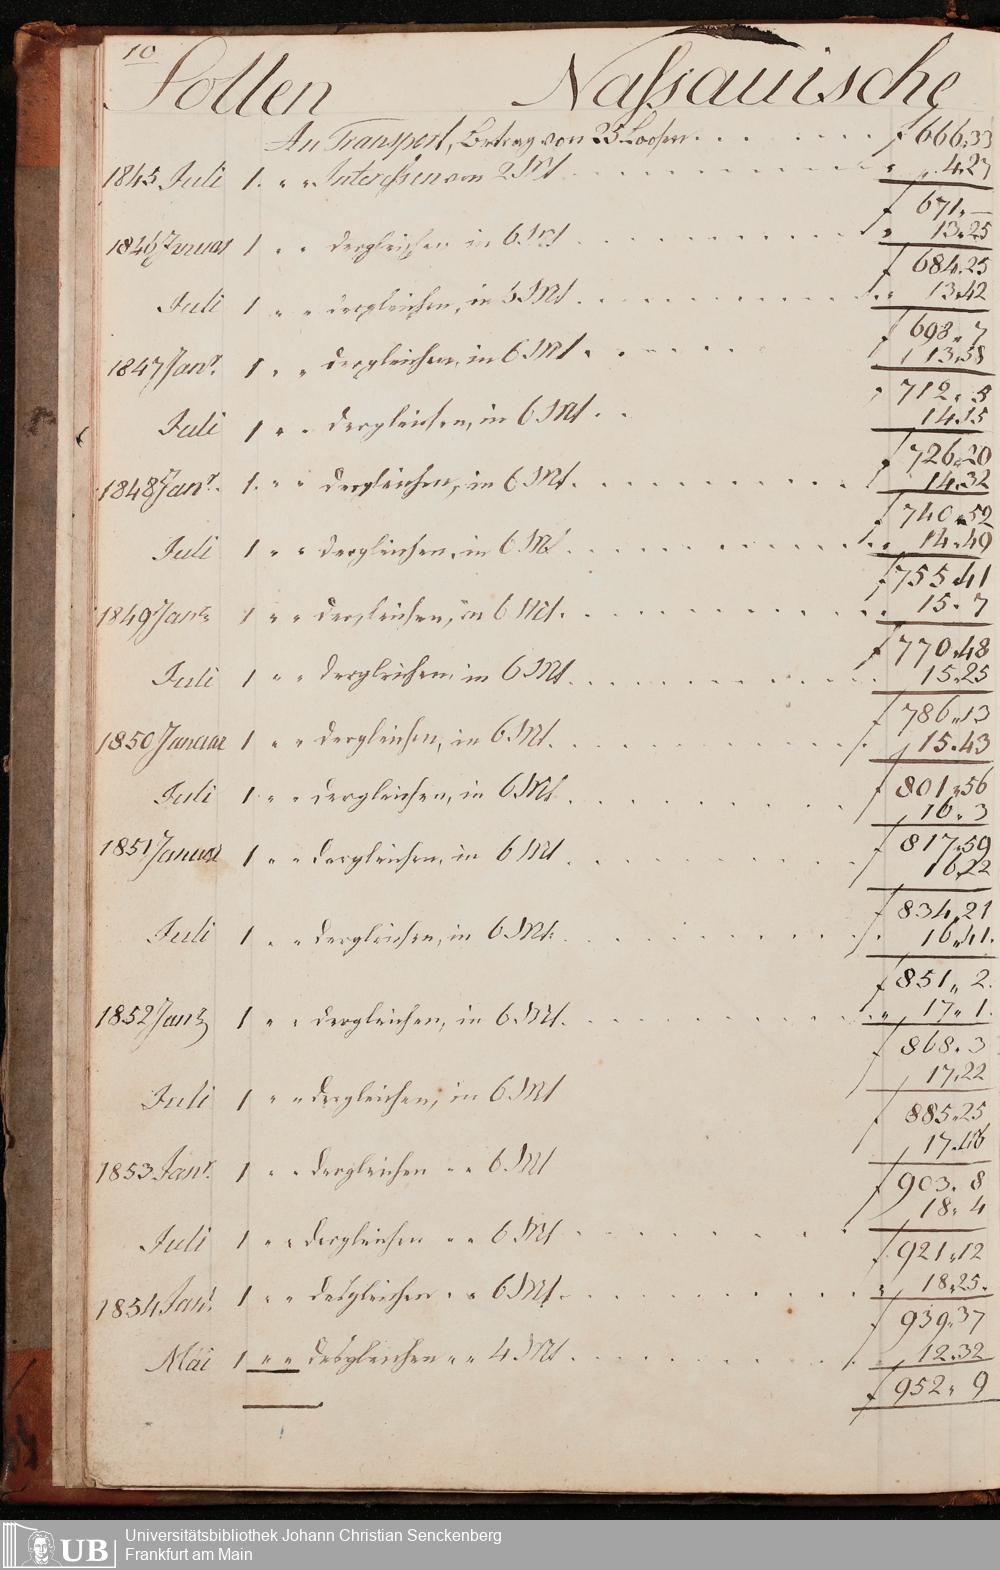 10
Sollen Nassauische
An Transport, Betrag von 25 Loosen . . . . . . . f 666„33
1845 Juli 1. „ „ Interessen von 2 Mt . . . . . . . „ „ 4.23
f 671„ —
1846 Januar 1 „ „ dergleichen in 6 Mt . . . . . . . „ 13„25
f 684„25
Juli 1 „ „ dergleichen, in 6 Mt . . . . . . . „ 13„42
f 698„ 7
1847 Janr. 1 „ „ dergleichen, in 6 Mt . . . . . . 13„58
712„ 5
Juli 1 „ „ dergleichen, in 6 Mt . . 14.15
f 726„20
1848 Janr. 1. „ „ dergleichen, in 6 Mt. . . . . . . . 14„32
f 740„52
Juli 1 „ „ dergleichen, in 6 Mt . . . . . . . „ 14„49
f 755„41
1849 Janr 1 „ „ dergleichen, in 6 Mt. . . . . . . . 15„ 7
f 770„48
Juli 1 „ „ dergleichen, in 6 Mt . . . . . . . 15„25
f 786„13
1850 Januar 1 „ „ dergleichen, in 6 Mt. . . . . . . . 15„43
f 801„56
Juli 1 „ „ dergleichen, in 6 Mt . . . . . . . 16„ 3
f 817„59
1851 Januar 1 „ „ dergleichen, in 6 Mt . . . . . . . 16„22
f 834„21
Juli 1 „ „ dergleichen, in 6 Mt. . . . . . . . 16„41.
f 851„ 2.
1852 Janr 1 „ „ dergleichen, in 6 Mt. . . . . . . . „ 17„ 1.
f 868„ 3
Juli 1 „ „ dergleichen, in 6 Mt 17„22
f 885„25
1853 Janr. 1 „ „ dergleichen „ „ 6 Mt 17„43
f 903„ 8
Juli 1 „ „ dergleichen „ „ 6 Mt . . . . . . 18„ 4
f 921„12
1854 Janr. 1 „ „ desgleichen „ „ 6 Mt. . . . . . . „ 18„25.
f 939„37
Mai 1 „ „ desgleichen „ „ 4 Mt . . . . . . . 12„32
f 952„ 9
UB Universitätsbibliothek Johann Christian Senckenberg
Frankfurt am Main